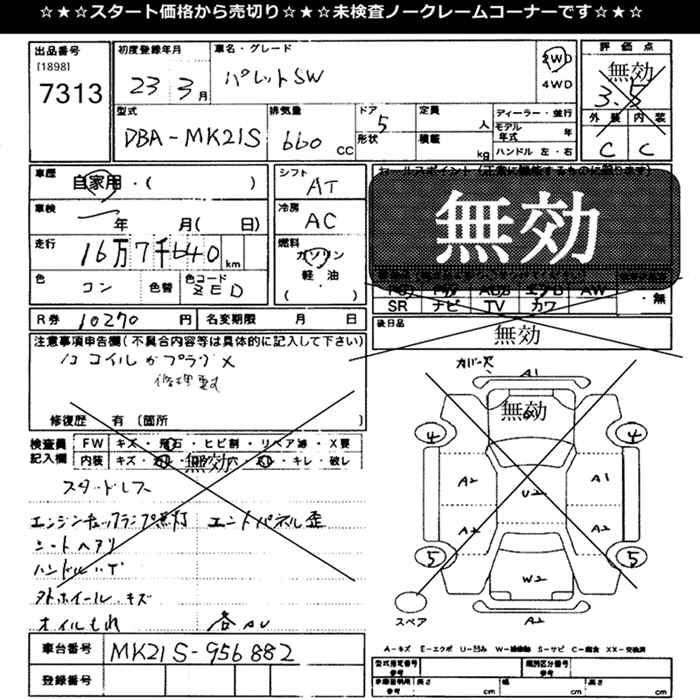 ☆★☆スタート価格から売切り☆★☆未検査ノークレームコーナーです☆★☆
出品番号
[1898]
7313
初度登録年月
23 3月
車名・グレード
パレットSW
2WD
4WD
評価点
無効
3.5
外装 内装
C C
型式
DBA-MK21S
排気量
660 CC
ドア
5
形状
定員
人
積載
kg
ディーラー・並行
モデル年式 年
ハンドル 左・右
車歴
自家用・( )
車検
年 月( 日)
走行
16万7千640km
色
コン
色替
色コード
ZED
シフト
AT
冷房
AC
燃料
ガソリン
軽・油
( )
無効
SR ナビ TV カワ ・無
後日品
無効
R券 10270円 名変期限 月 日
注意事項申告欄(不具合内容等は具体的に記入して下さい)
コイルかプラグ×
修復歴 有 〔箇所 〕
検査員記入欄
FW キズ・飛石・ヒビ割・リペア済・X要
内装 キズ・ 穴・ ・キレ・破レ
無効
スタッドレス
エンジンチェックランプ点灯 エンドパネル歪
シートヘタリ
ハンドルハゲ
外ホイール.キズ
オイルもれ 各AU
車台番号
MK21S-956882
登録番号
A1
無効
4 4
A2 U2 A1
A2 A2
5 5
W2
スペア
A2
A-キズ E-エクボ U-凹み W-補修跡 S-サビ C-腐食 XX-交換済
型式指定番号 参考
類別区分番号 参考
長さ cm
幅 cm
高さ cm